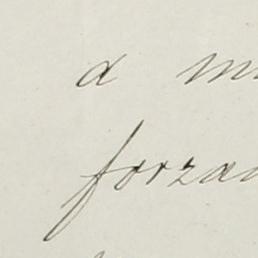 a m
forza